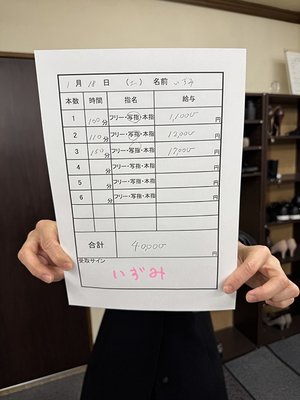 1月 18日 (土) 名前 いずみ
本数 時間 指名 給与
1 100分 フリー・写指・本指 11,000円
2 110分 フリー・写指・本指 12,000円
3 160分 フリー・写指・本指 17,000円
4 分 フリー・写指・本指 円
5 分 フリー・写指・本指 円
6 分 フリー・写指・本指 円
合計 40,000円
受取サイン
いずみ